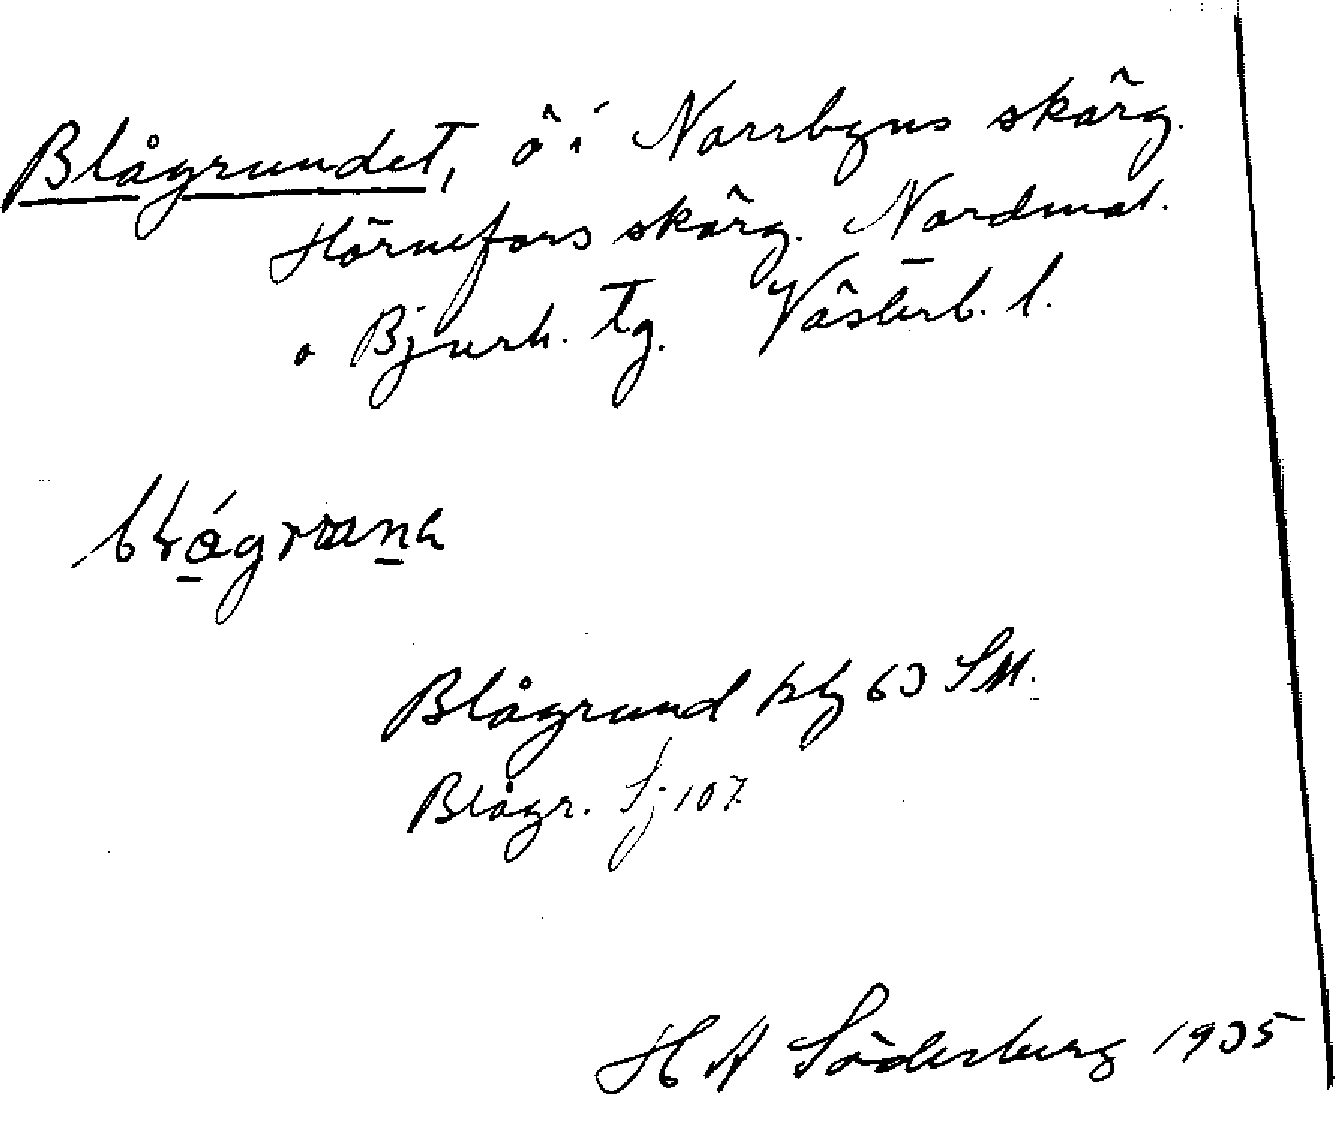 Blågrundet, ö i Norrbyns skärg.
Hörnefors skärg. Nordmal.
o Bjurh. tg. Västerb. l.
Blågrund kbg 63 SM.
Blågr. Sj 107
H A Söderberg 1935